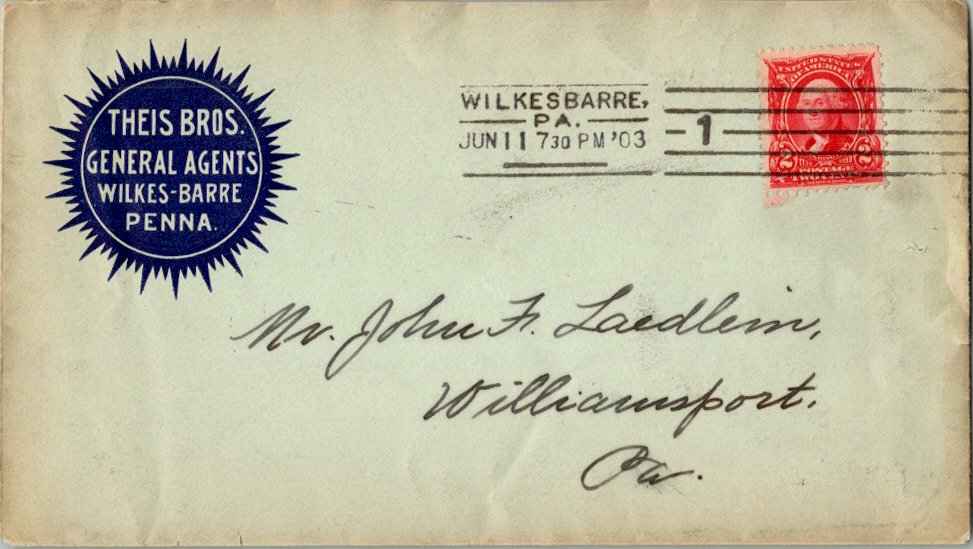 THEIS BROS.
GENERAL AGENTS
WILKES-BARRE
PENNA.
WILKESBARRE,
PA.
JUN 11 730 PM '03
1
UNITED STATES
OF AMERICA
2 2
Mr. John F. Laedlein,
Williamsport.
Pa.